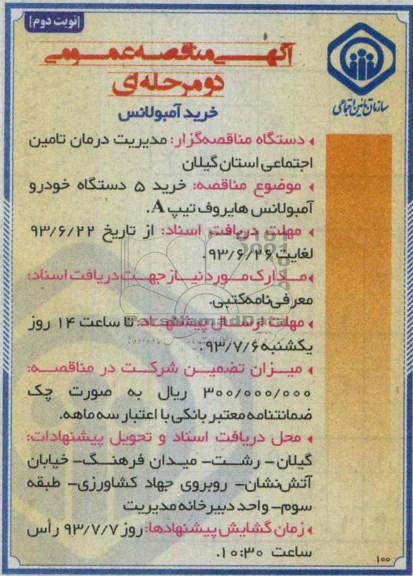 [نوبت دوم]
آگهی مناقصه عمومی
دو مرحله ای
خرید آمبولانس
سازمان تامین اجتماعی
دستگاه مناقصه‌گزار: مدیریت درمان تامین
اجتماعی استان گیلان
موضوع مناقصه: خرید ۵ دستگاه خودرو
آمبولانس هایروف تیپ A.
مهلت دریافت اسناد: از تاریخ ۹۳/۶/۲۲
لغایت ۹۳/۶/۲۶.
مدارک مورد نیاز جهت دریافت اسناد:
معرفی‌نامه کتبی.
مهلت ارسال پیشنهاد: تا ساعت ۱۴ روز
یکشنبه ۹۳/۷/۶.
میزان تضمین شرکت در مناقصه:
۳۰۰/۰۰۰/۰۰۰ ریال به صورت چک
ضمانتنامه معتبر بانکی با اعتبار سه ماهه.
محل دریافت اسناد و تحویل پیشنهادات:
گیلان – رشت – میدان فرهنگ – خیابان
آتش‌نشان – روبروی جهاد کشاورزی – طبقه
سوم – واحد دبیرخانه مدیریت
زمان گشایش پیشنهادها: روز ۹۳/۷/۷ رأس
ساعت ۱۰:۳۰.
۱۰۰